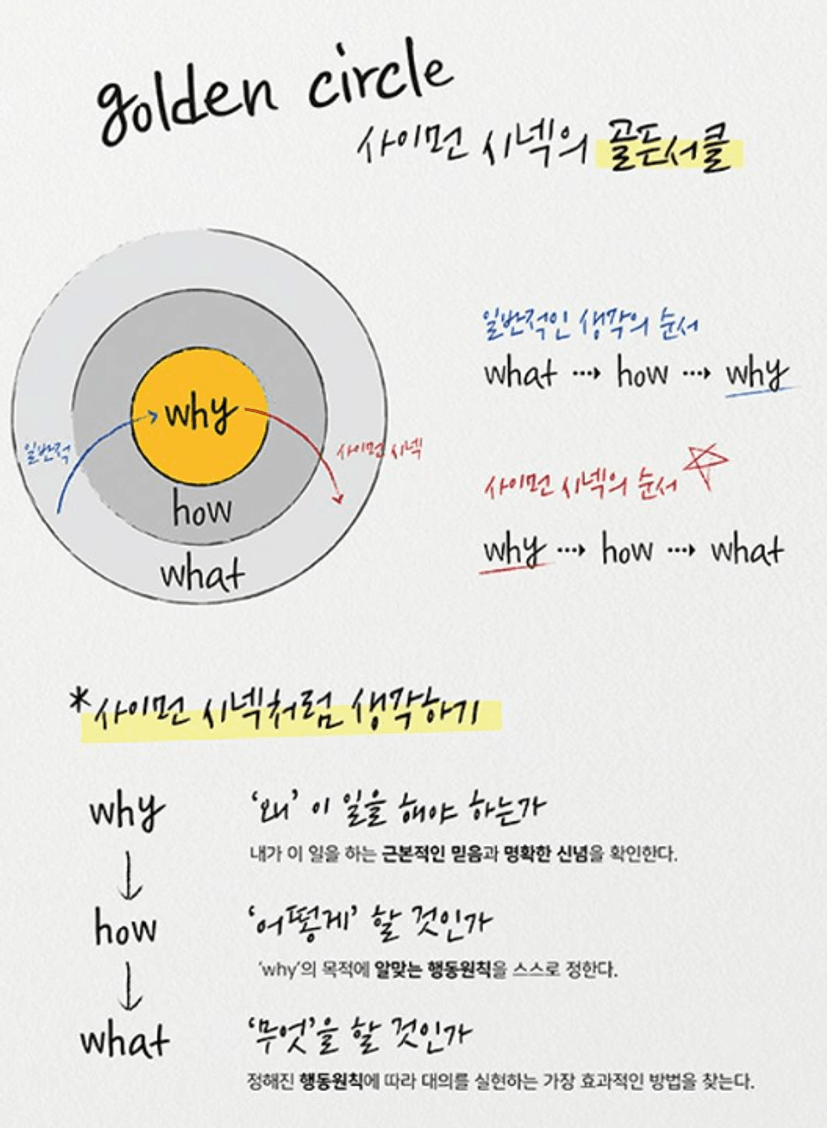 golden circle
사이먼 시넥의 골든서클
why
일반적
사이먼 시넥
how
what
일반적인 생각의 순서
what ···→ how ···→ why
사이먼 시넥의 순서
why ···→ how ···→ what
*사이먼 시넥처럼 생각하기
why
'왜' 이 일을 해야 하는가
내가 이 일을 하는 근본적인 믿음과 명확한 신념을 확인한다.
how
'어떻게' 할 것인가
'why'의 목적에 알맞는 행동원칙을 스스로 정한다.
what
'무엇'을 할 것인가
정해진 행동원칙에 따라 대의를 실현하는 가장 효과적인 방법을 찾는다.